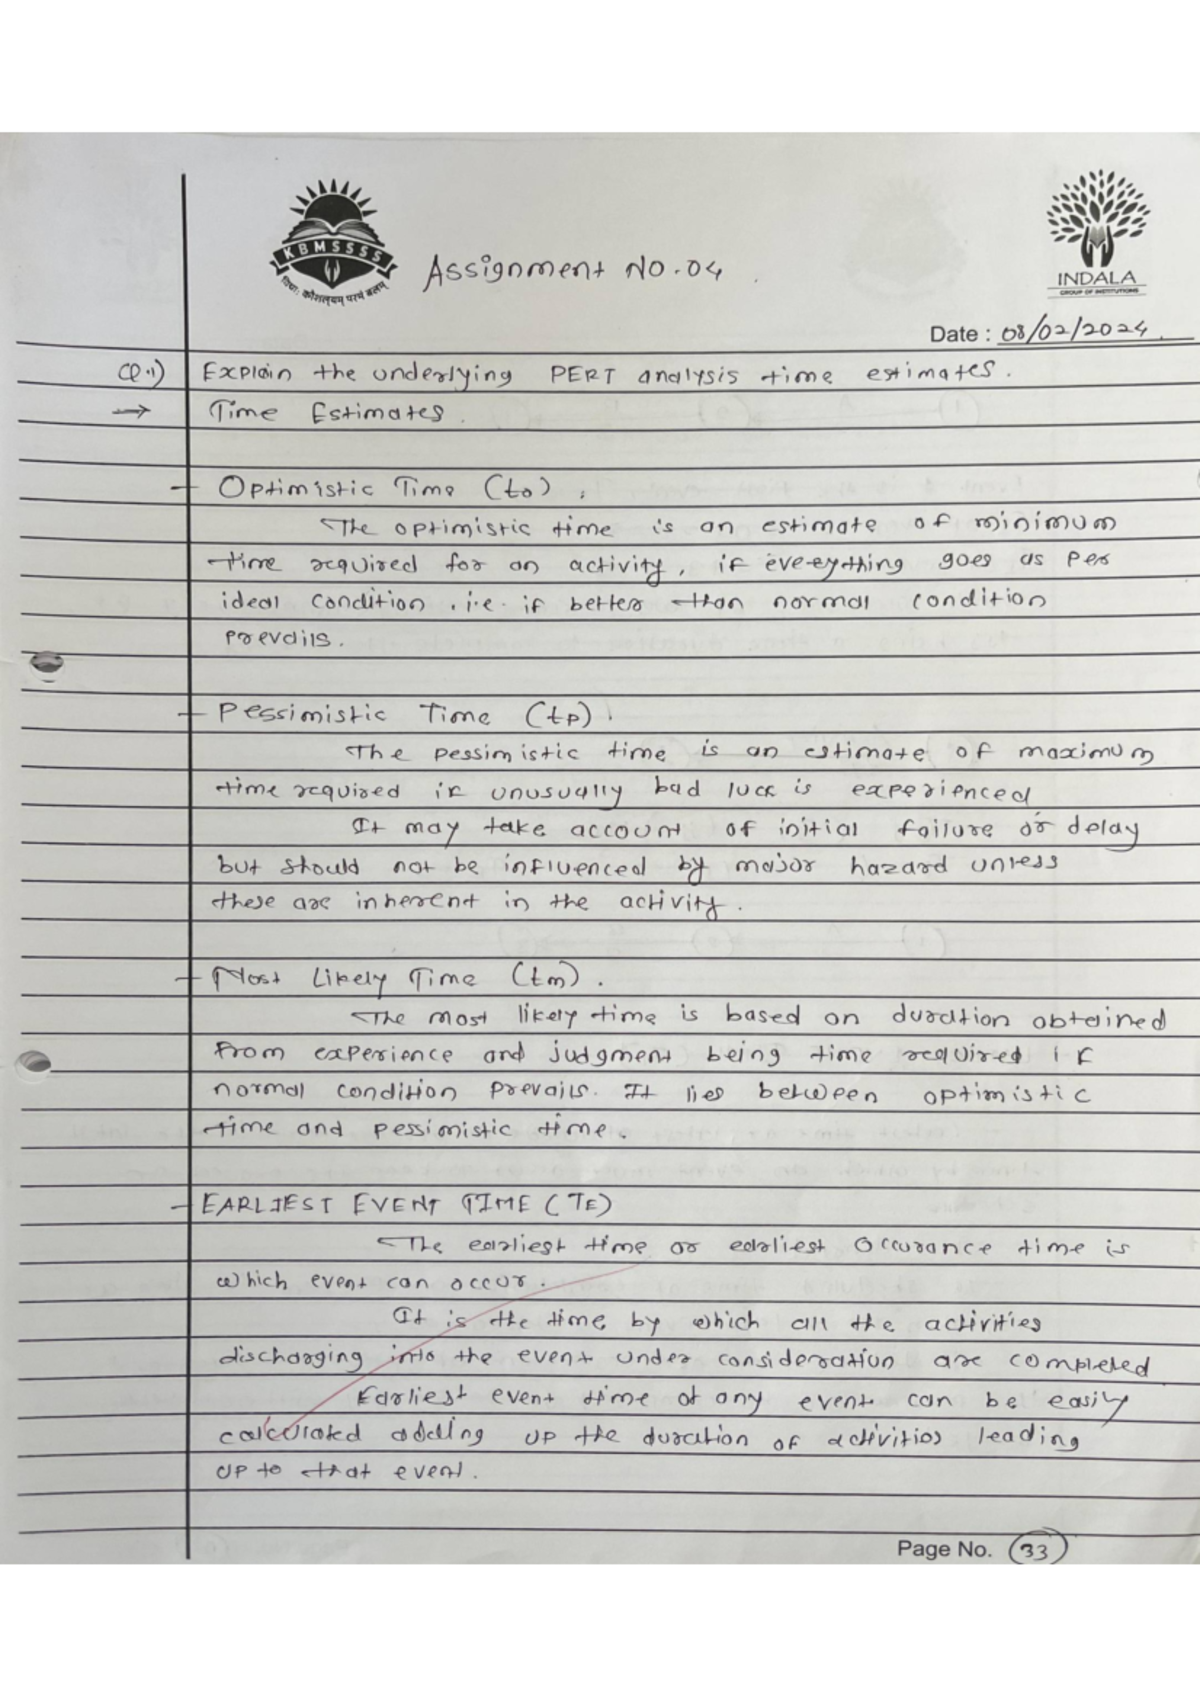 KBMSSSS
विद्या: कौशल्यम् परमं बलम्
Assignment No.04
INDALA
GROUP OF INSTITUTIONS
Date : 08/02/2024
Q.1) Explain the underlying PERT analysis time estimates.
→ Time Estimates.
- Optimistic Time (to).
The optimistic time is an estimate of minimum
time required for an activity, if eve-eything goes as per
ideal condition . i.e. if better than normal condition
prevails.
- Pessimistic Time (tp).
The pessimistic time is an estimate of maximum
time required if unusually bad luck is experienced
It may take account of initial failure or delay
but should not be influenced by major hazard unless
these are inherent in the activity.
- Most Likely Time (tm).
The most likely time is based on duration obtained
from experience and judgment being time required if
normal condition prevails. It lies between optimistic
time and pessimistic time.
- EARLIEST EVENT TIME (TE)
The earliest time or earliest occurance time is
which event can occur.
It is the time by which all the activities
discharging into the event under consideration are completed
Earliest event time of any event can be easily
calculated adding up the duration of activities leading
up to that event.
Page No. 33